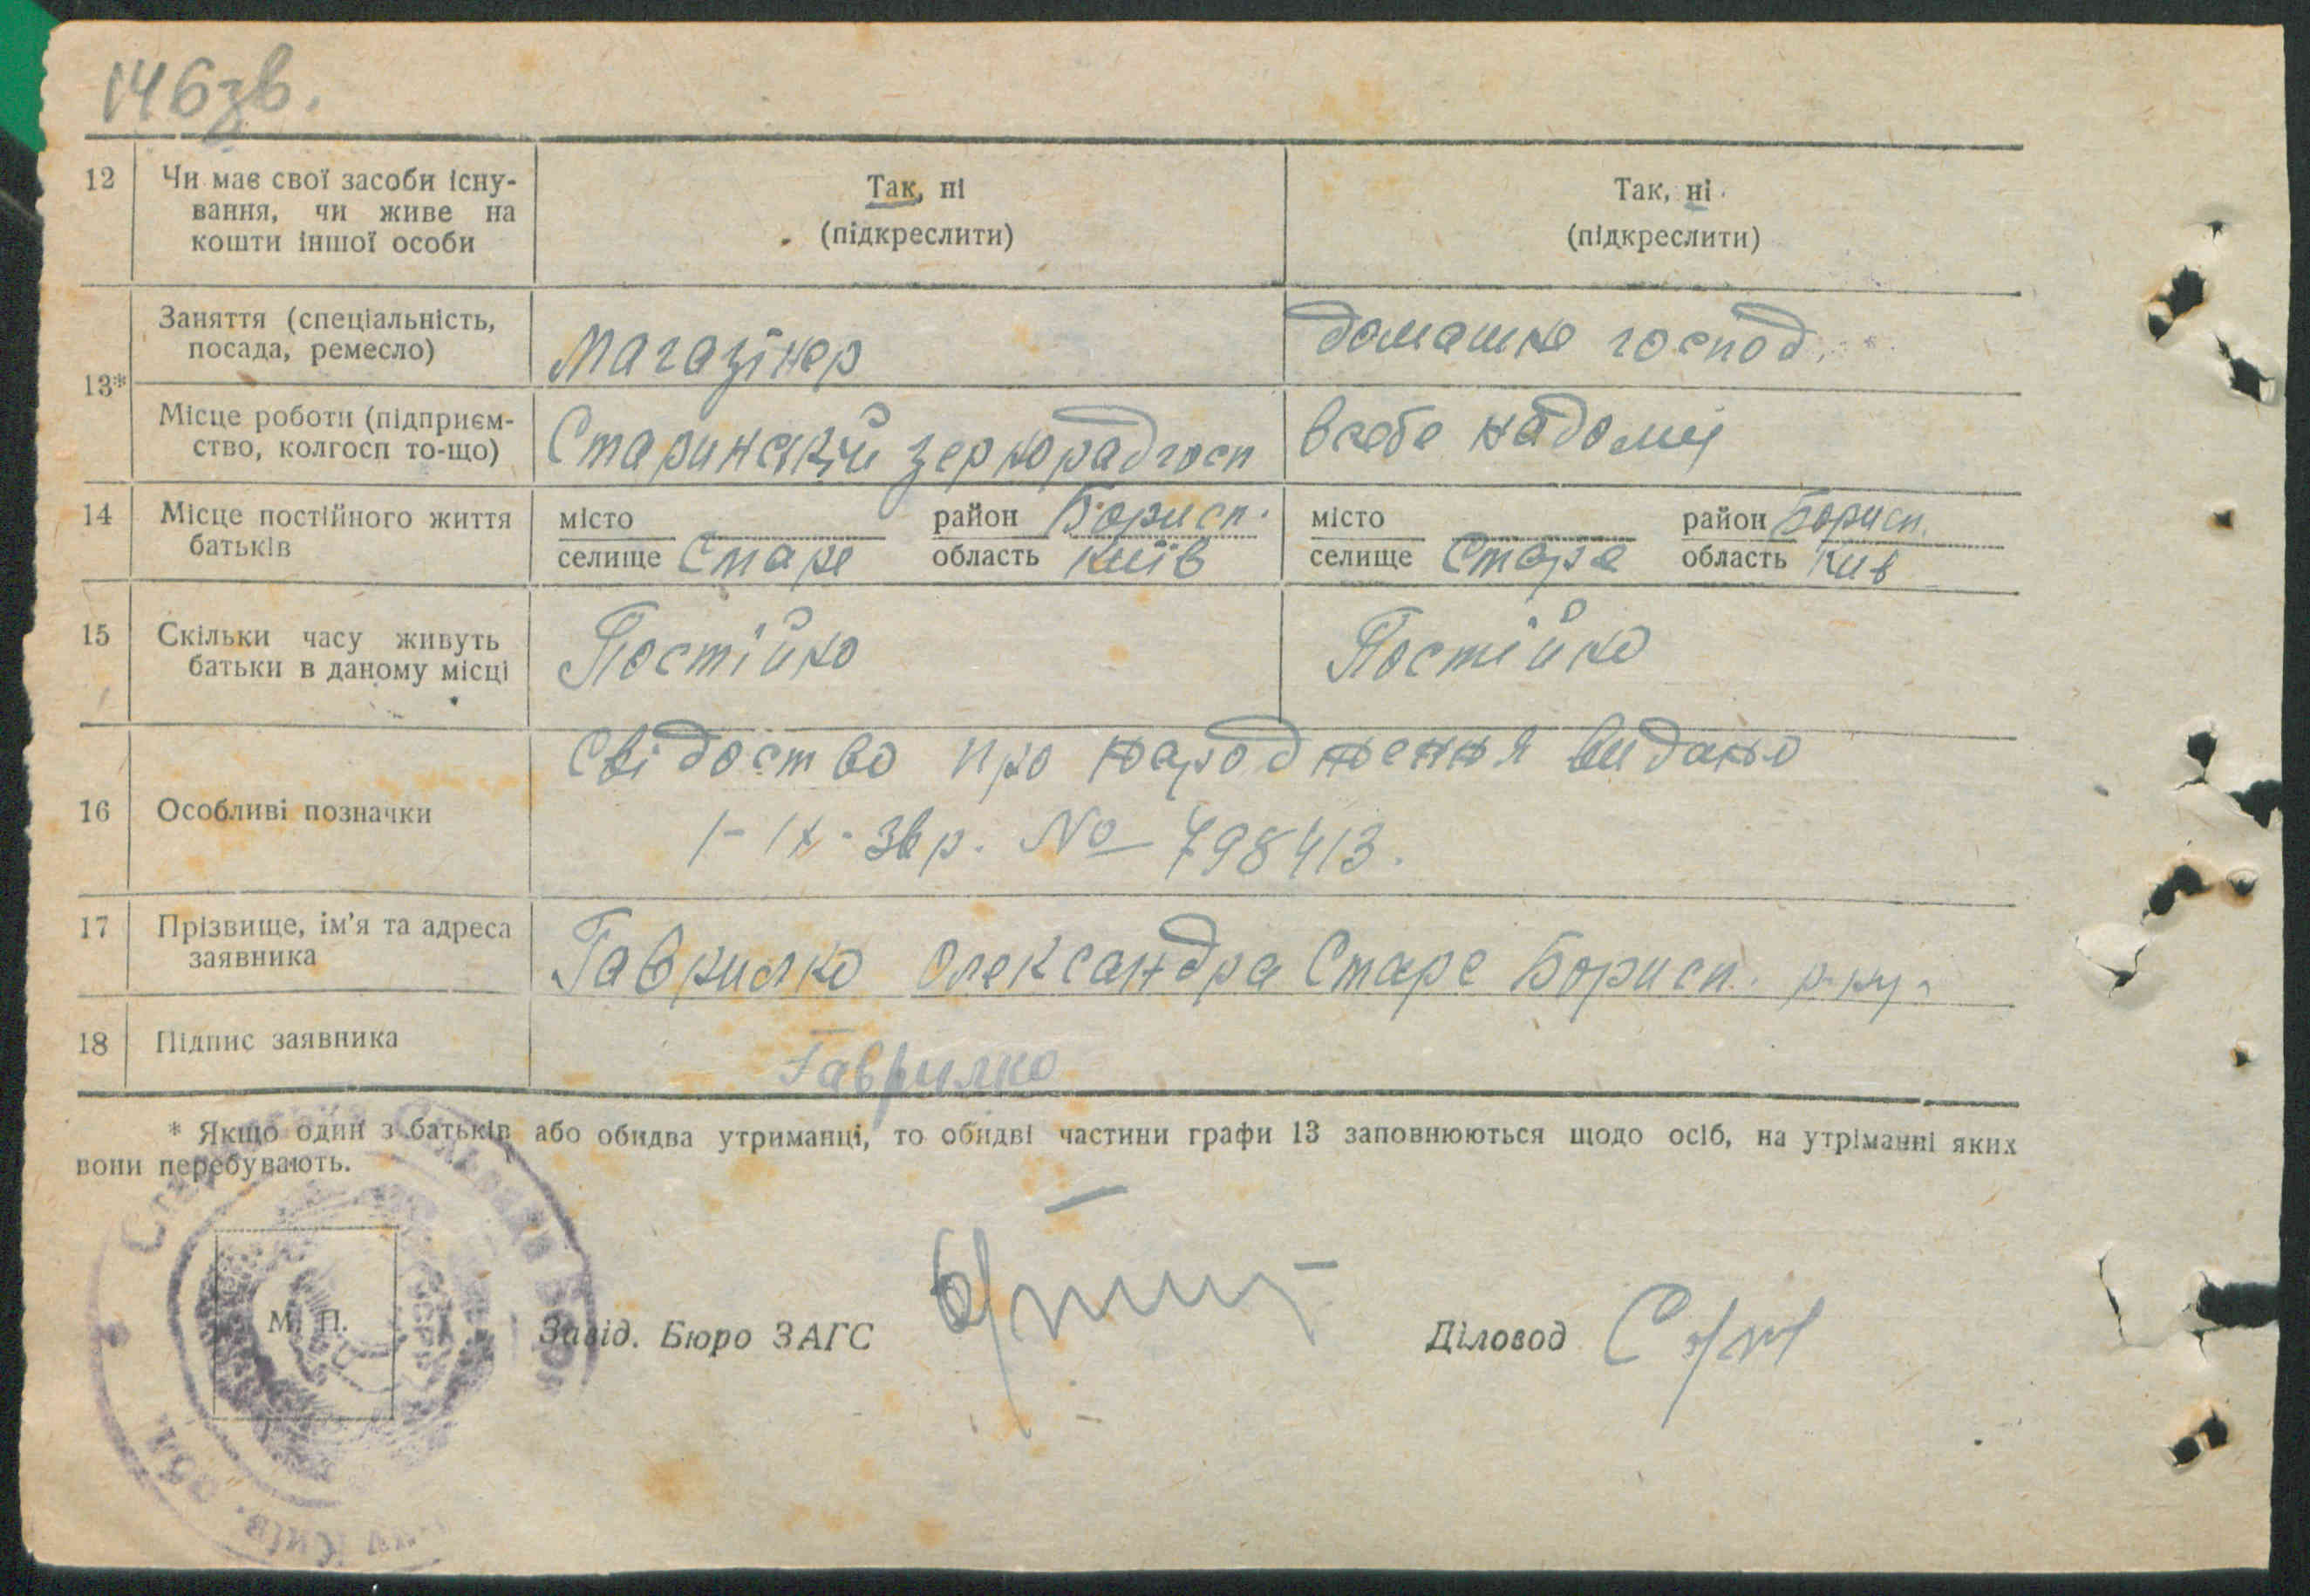 146зв.
12 Чи має свої засоби існу- Так, ні Так, ні
вання, чи живе на (підкреслити) (підкреслити)
кошти іншої особи
13* Заняття (спеціальність, магазінер домашнє господ.
посада, ремесло)
Місце роботи (підприєм- Старинський зернорадгосп в себе на дому
ство, колгосп то-що)
14 Місце постійного життя місто район Борисп. місто район Борисп.
батьків селище Старе область Київ селище Старе область Київ
15 Скільки часу живуть Постійно Постійно
батьки в даному місці
Свідоство про народження видано
16 Особливі позначки
1-IX-36 р. № 798413.
17 Прізвище, ім'я та адреса
заявника Гаврилко Олександра Старе Борисп. р-ну.
18 Підпис заявника Гаврилко
* Якщо один з батьків або обидва утриманці, то обидві частини графи 13 заповнюються щодо осіб, на утріманні яких
вони перебувають.
М. П.
Завід. Бюро ЗАГС Діловод